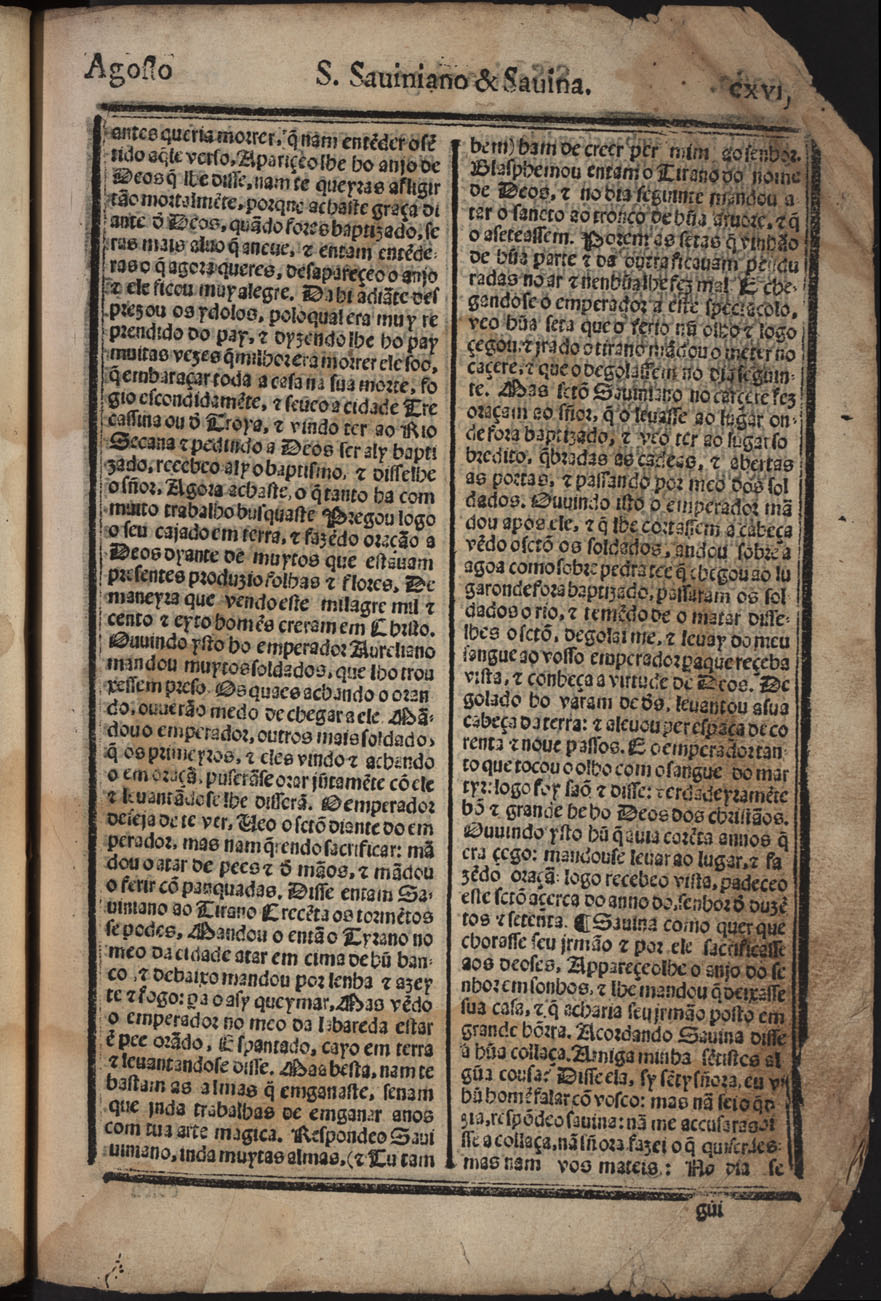 Agoſto
S. Sauiniano & Sauina.
cxvi,
antes queria morrer, q̃ nam entẽder o ſẽ
tido aq̃le verſo, Apariçeolhe ho anjo de
Deos q̃ lhe diſſe, nam te queyras afligir
tão mortalmẽte, porque achaſte graça di
ante õ Deos, quãdo fores baptizado, ſe
ras mais aluo q̃ a neue, ⁊ entam entẽde-
ras o q̃ agora queres, deſapareçeo o anjo
⁊ ele ficou muy alegre. Da hi adiãte deſ
prezou os ydolos, poloqual era muy re
prendido do pay, ⁊ dyzendo lhe ho pay
muitas vezes q̃ milhor era morrer ele ſoo,
q̃ embaraçar toda a caſa na ſua morte, fo
gio eſcondidamẽte, ⁊ ſeuẽo a cidade Tre
caſſina ou õ Troya, ⁊ vindo ter ao Rio
Secana ⁊ pedindo a Deos ſer aly bapti
zado, recebeo aly o baptiſmo, ⁊ diſſelhe
o ſñor, Agora achaſte, o q̃ tanto ha com
muito trabalho buſquaſte Pregou logo
o ſeu cajado em terra, ⁊ fazẽdo oração a
Deos dyante de muytos que eſtauam
preſentes produzio folhas ⁊ flores, De
maneyra que vendo eſte milagre mil ⁊
cento ⁊ eyto homẽs creram em Chriſto.
Ouuindo yſto ho emperador Aureliano
mandou muytos ſoldados, que lho trou
xeſſem preſo. Os quaes achando o oran
do, ouuerão medo de chegar a ele. Mã-
dou o emperador, outros mais ſoldados
q̃ os primeyros, ⁊ eles vindo ⁊ achando
o em oraçã, puſerãſe orar jũtamẽte cõ ele
⁊ leuantãdoſe lhe diſſerã. O emperador
deſeja de te ver, Ueo o ſctõ diante do em
perador, mas nam q̃rendo ſacrificar: mã
dou o atar de pees ⁊ õ mãos, ⁊ mãdou
o ferir cõ panquadas. Diſſe entam Sa-
uiniano ao Tirano Crecẽta os tormẽtos
ſe podes, Mandou o então o Tyrano no
meo da cidade atar em cima de hũ ban-
co, ⁊ debaixo mandou por lenha ⁊ azey
te ⁊ fogo: ꝑa o aſy queymar, Mas vẽdo
o emperador no meo da labareda eſtar
ẽ pee orãdo, Eſpantado, cayo em terra
⁊ leuantandoſe diſſe. Maa beſta, nam te
baſtam as almas q̃ emganaſte, ſenam
que jnda trabalhas de emganar anos
com tua arte magica. Reſpondeo Saui
uiniano, inda muytas almas, (⁊ Tu tam
bem) ham de creer per mim ao ſenhor.
Blasphemou entam o Tirano do nome
de Deos, ⁊ no dia ſeguinte mandou a
tar o ſancto ao tronco de hũa aruore, ⁊ q̃
o aſeteaſſem. Porem as ſetas q̃ vinhão
de hũa parte ⁊ da outra ficauam pendu
radas no ar ⁊ nenhũa lhe fez mal. E che-
gandoſe o emperador a eſte ſpectacolo,
veo hũa ſeta que o ferio nũ olho ⁊ logo
çegou: ⁊ jrado o tirano mãdou o meter no
caçere, ⁊ que o degolaſſem no dia ſeguin-
te. Mas ſctõ Sauiniano no carcere fez
oraçam ao ſñor, q̃ o leuaſſe ao lugar on-
de fora baptizado, ⁊ veo ter ao lugar ſo
bredito, q̃bradas as cadeas, ⁊ abertas
as portas, ⁊ paſſando por meo dos ſol
dados. Ouuindo iſto o emperador mã
dou apos ele, ⁊ q̃ lhe cortaſſem a cabeça
vẽdo o ſctõ os ſoldados, andou ſobre a
agoa como ſobre pedra tee q̃ chegou ao lu
gar onde fora baptizado, paſſaram os ſol
dados o rio, ⁊ temẽdo de o matar diſſe-
lhes o ſctõ, degolai me, ⁊ leuay do meu
ſangue ao voſſo emperador ꝑaque reçeba
viſta, ⁊ conheça a virtude de Deos. De
golado ho varam de ds̃, leuantou a ſua
cabeça da terra: ⁊ a leuou per eſpaça de co
renta ⁊ noue paſſos. E o emperador tan-
to que tocou o olho com o ſangue do mar
tyr: logo foy ſaõ ⁊ diſſe: verdadeyramẽte
bõ ⁊ grande he ho Deos dos chriſtãos.
Ouuindo yſto hũ q̃ auia corẽta annos q̃
era çego: mandouſe leuar ao lugar, ⁊ fa
zẽdo oraçã: logo recebeo viſta, padeceo
eſte ſctõ açerca do anno do, ſenhor õ duzẽ
tos ⁊ ſetenta. ¶ Sauina como quer que
choraſſe ſeu jrmão ⁊ por ele ſacrificaſſe
aos deoſes, Appareçeolhe o anjo do ſe
nhor em ſonhos, ⁊ lhe mandou q̃ deixaſſe
ſua caſa, ⁊ q̃ acharia ſeu jrmão poſto em
grande hõrra. Acordando Sauina diſſe
a hũa collaça. Amiga minha ſẽtiſtes al
gũa couſa? Diſſe ela, ſy ſẽty ſñora, eu vi
hũ homẽ falar cõ voſco: mas nã ſei o q̃ di
zia, reſpõdeo ſauina: nã me accuſaras? diſ
ſe a collaça, nã ſñora fazei o q̃ quiſerdes:
mas nam vos mateis: No dia ſe
gũi